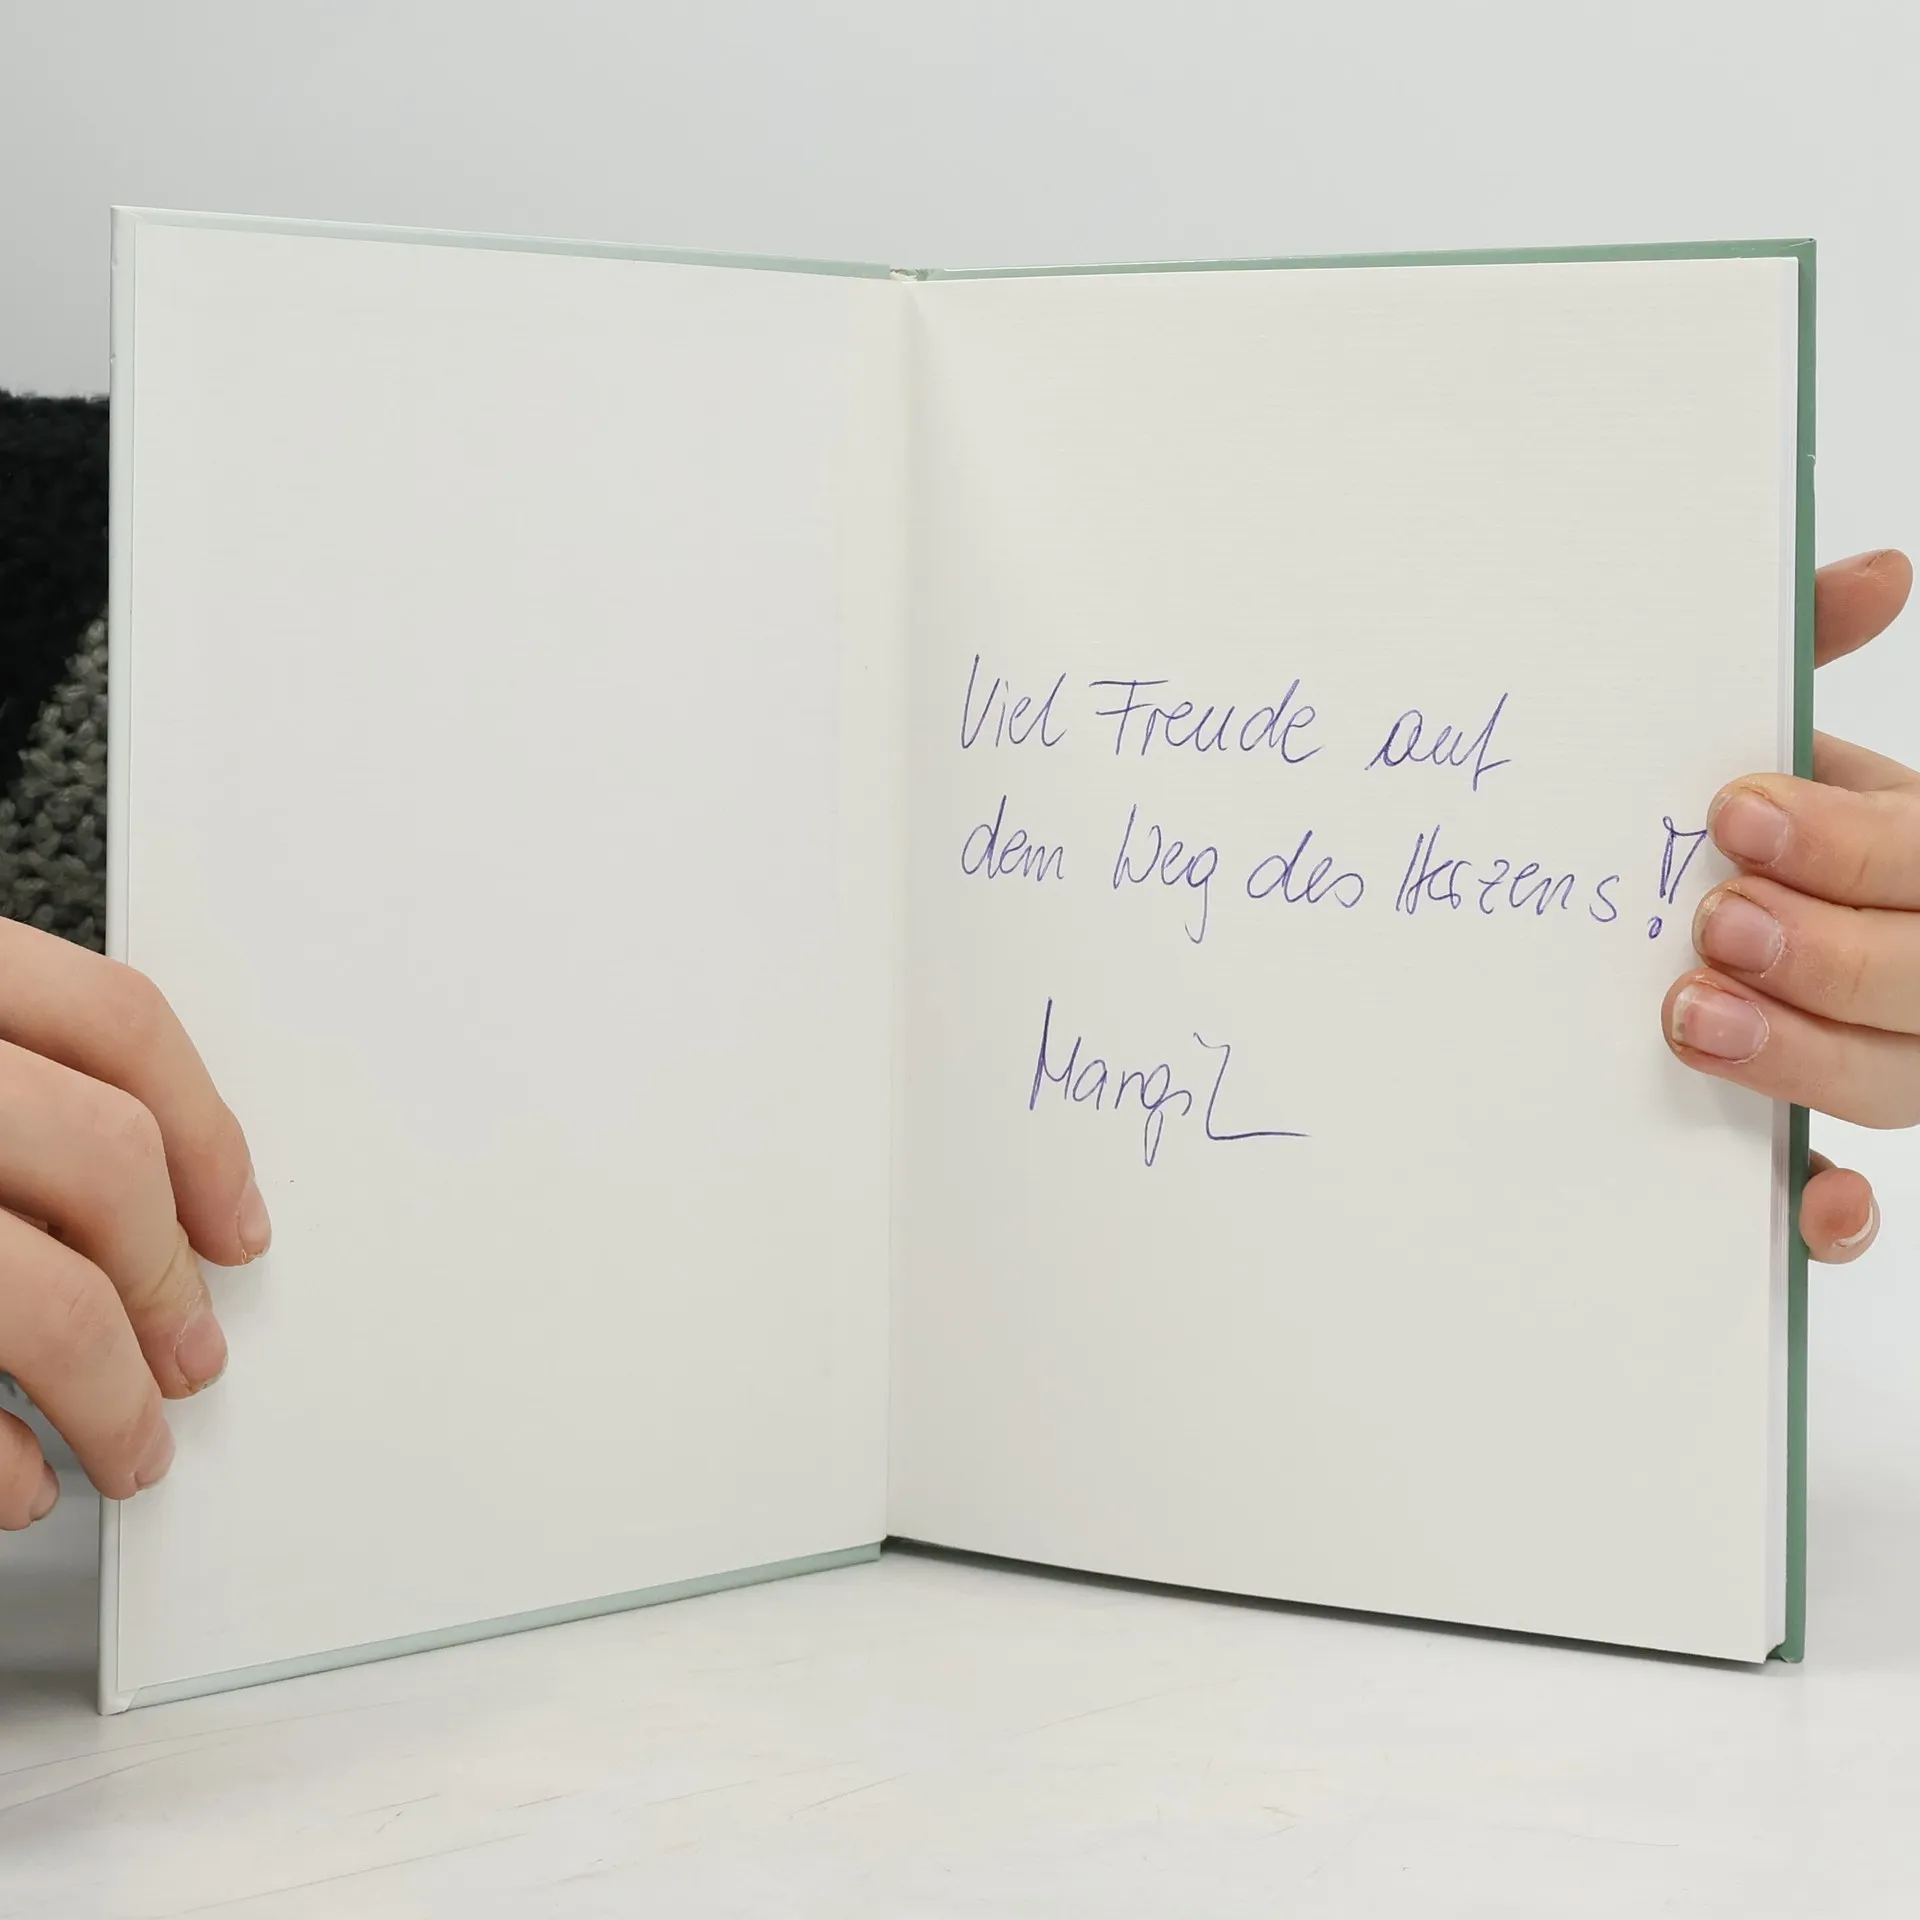 Viel Freude auf
dem Weg des Herzens!
Margit